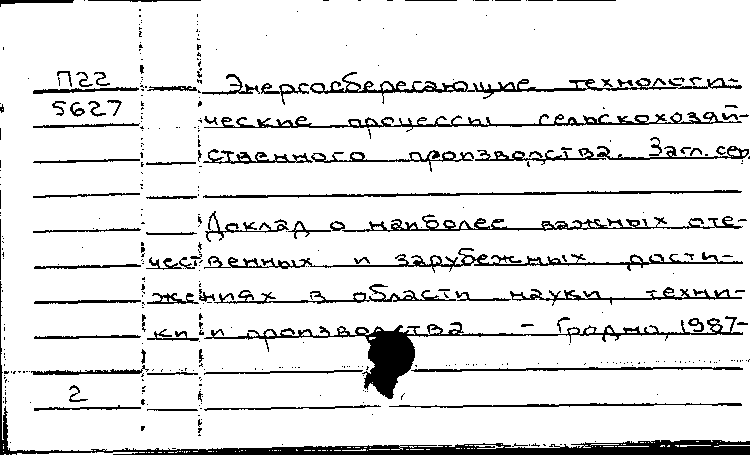 П22 Энергосберегающие технологи-
5627 ческие процессы сельскохозяй-
ственного производства. Загл. сер
Доклад о наиболее важных оте-
чественных и зарубежных дости-
жениях в области науки, техни-
ки и производства. - Гродно, 1987-
2